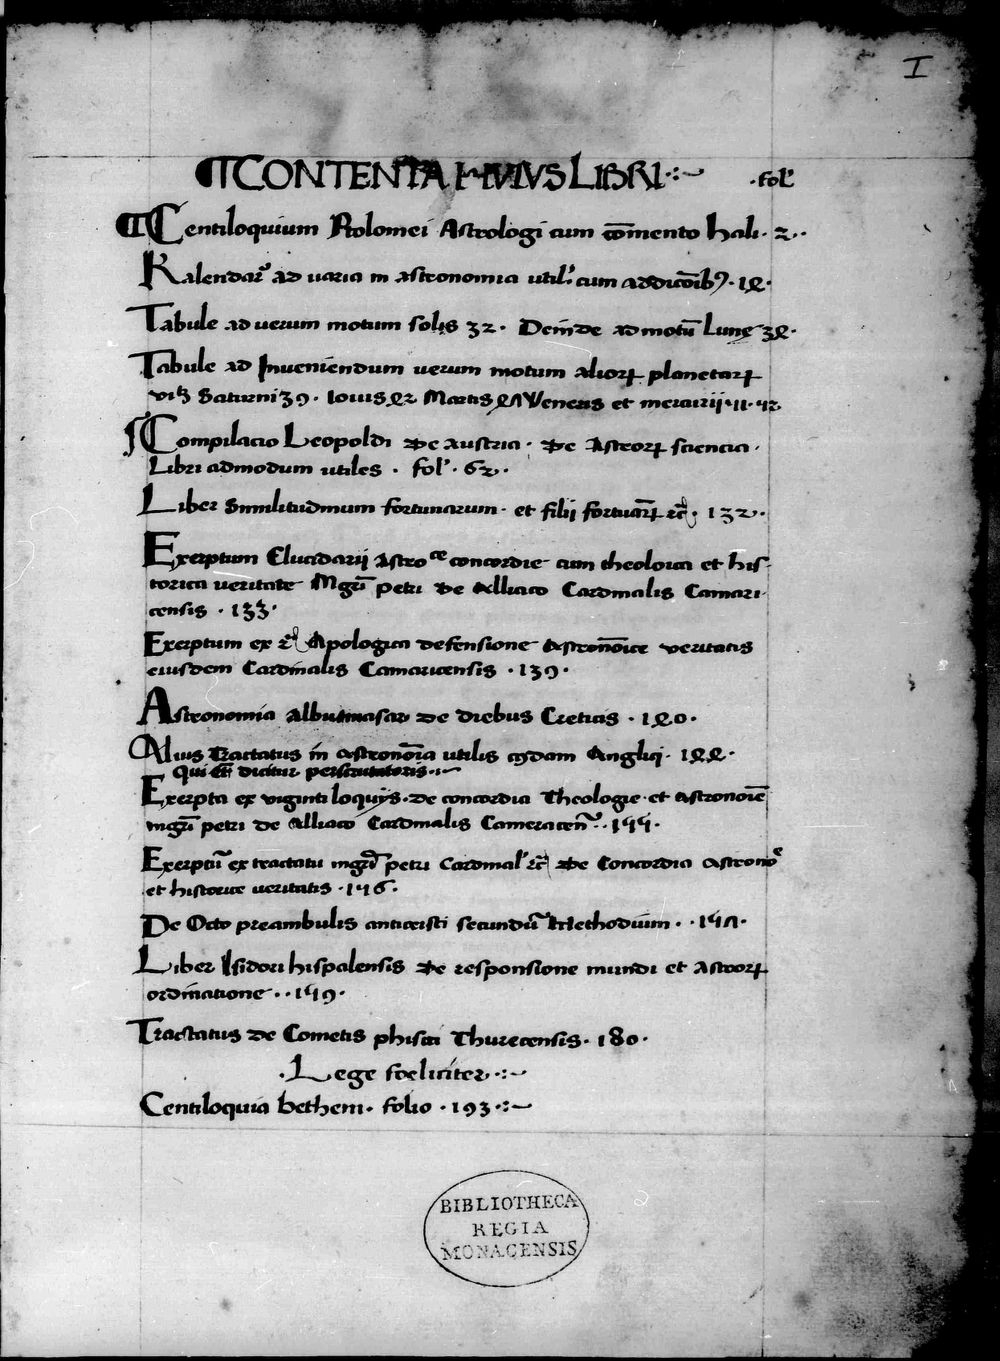 I
CONTENTA HUIUS LIBRI .fol.
Centiloquium Ptolomei Astrologi cum cōmento hali · 2 ·
Kalendar' ad varia in astronomia util' cum addicōib9 · 18 ·
Tabule ad verum motum solis 32 · Deinde ad motū Lunę 38 ·
Tabule ad Inveniendum verum motum alioꝝ planetaꝝ
Saturni 39 · Iovis 42 Martis Veneris et mercurii
Compilacio Leopoldi de austria · de Astroꝝ sciencia ·
Libri admodum utiles · fol' · 62 ·
Liber Similitudinum fortunarum · et filii · 132 ·
Exerptum Elucidarii Astroce concordie cum theoloica et his-
torica veritate Mgrī petri de Alliaco Cardinalis Camari-
censis · 133 ·
Exerptum ex Apologica defensione Astronōice veritatis
eiusdem Cardinalis Camaricensis · 139 ·
Astronomia albumasar de diebus Creticis · 140 ·
Alius Tractatus in astronōia utilis cuiusdam Anglici · 144 ·
Qui dicitur perscrutatoris
Exerpta ex viginti loquiis · de concordia Theologie · et astronoīe
mgrī petri de Alliaco Cardinalis Cameracen̄ ·
Exerptū ex tractatu mgrī petri Cardinal' de Concordia astrono
et historice veritatis ·
De Octo preambulis anticristi secundū Methodium ·
Liber Isidori hispalensis de responsione mundi et Astroꝝ
ordinatione ·
Tractatus de Cometis phisici Thurecensis · 180 ·
· Lege foeliciter
Centiloquia bethem · folio · 193
BIBLIOTHECA
REGIA
MONACENSIS